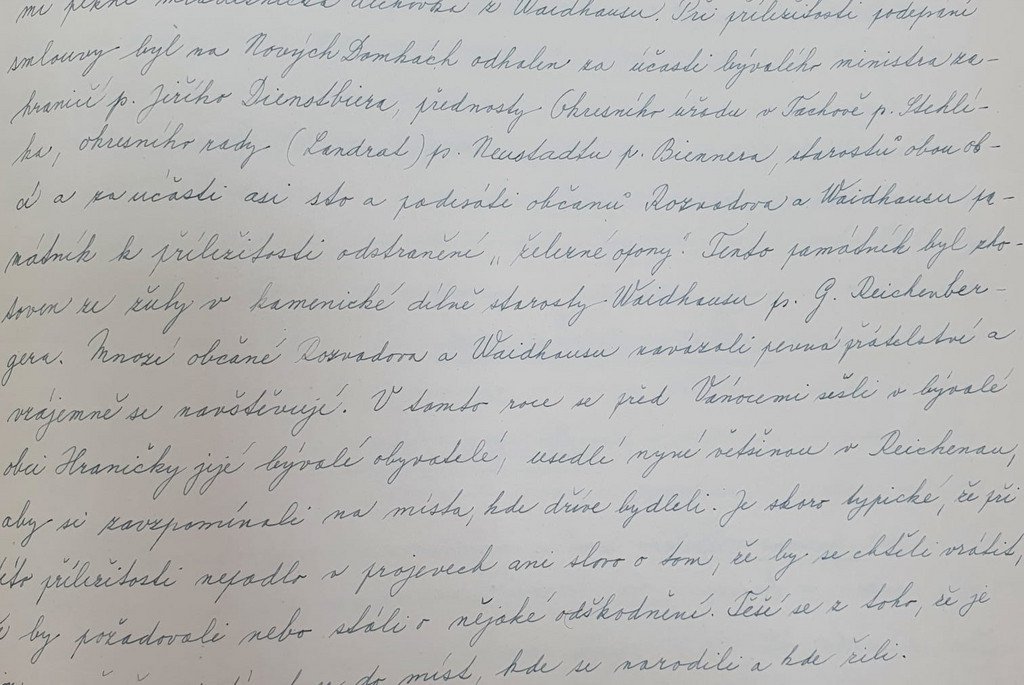 mi pěkně mládežnická dechovka z Waidhausu. Při příležitosti podepsání
smlouvy byl na Nových Domkách odhalen za účasti bývalého ministra za-
hraničí p. Jiřího Dienstbiera, přednosty Okresního úřadu v Tachově p. Stehlí-
ka, okresního rady (Landrat) p. Neustadtu p. Biennera, starostů obou ob-
cí a za účasti asi sto a padesáti občanů Rozvadova a Waidhausu pa-
mátník k příležitosti odstranění „železné opony". Tento památník byl zho-
toven ze žuly v kamenické dílně starosty Waidhausu p. G. Reichenber-
gera. Mnozí občané Rozvadova a Waidhausu navázali pevná přátelství a
vzájemně se navštěvují. V tomto roce se před Vánocemi sešli v bývalé
obci Hraničky její bývalí obyvatelé, usedlí nyní většinou v Reichenau,
aby si zavzpomínali na místa, kde dříve bydleli. Je skoro typické, že při
této příležitosti nepadlo v projevech ani slovo o tom, že by se chtěli vrátit,
by požadovali nebo stáli o nějaké odškodnění. Těší se z toho, že je
do míst, kde se narodili a kde žili.